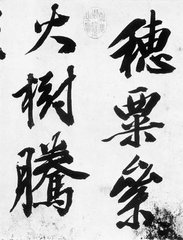 穗粟
火樹騰